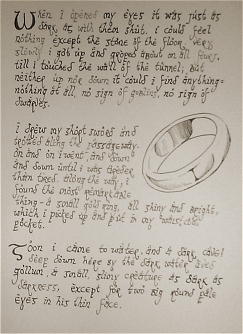 When i opened my eyes it was just as
dark as with them shut. i could feel
nothing except the stone of the floor. very
slowly i got up and groped about on all fours,
till i touched the wall of the tunnel; but
neither up nor down it could i find anything-
nothing at all, no sign of goblins, no sign of
dwarves.
i drew my short sword and
trotted along the passageway.
On and on i went, and down
and down until i was
than tired. Along the way, i
found the most remarkable
thing - a small gold ring, all shiny and bright,
which i picked up and put in my
pocket.
Soon i came to water, and a dark cave!
deep down here by the dark water lived
gollum, a small slimy creature as dark as
darkness, except for two big round pale
eyes in his thin face.